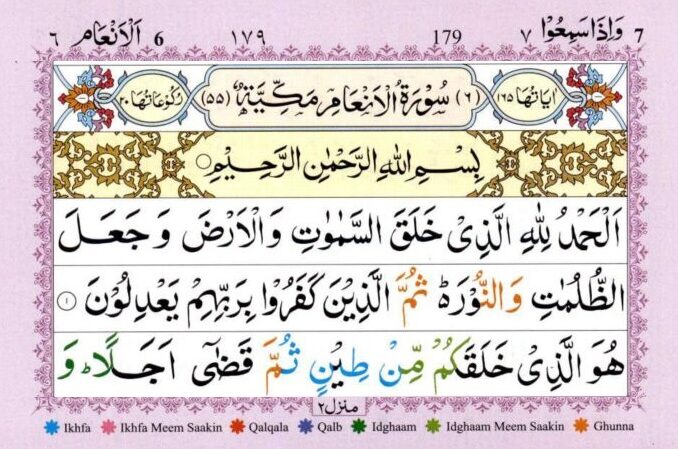 ٦ اَلْاَنْعَام 6 ١٧٩ 179 ٧ وَاِذَا سَمِعُوْا 7
اٰيَاتُهَا ١٦٥ (٦) سُوْرَةُ الْاَنْعَامِ مَكِّيَّةٌ (٥٥) رُكُوْعَاتُهَا ٢٠
بِسْمِ اللّٰهِ الرَّحْمٰنِ الرَّحِيْمِ
اَلْحَمْدُ لِلّٰهِ الَّذِىْ خَلَقَ السَّمٰوٰتِ وَالْاَرْضَ وَ جَعَلَ
الظُّلُمٰتِ وَالنُّوْرَ ؕ ثُمَّ الَّذِيْنَ كَفَرُوْا بِرَبِّهِمْ يَعْدِلُوْنَ ١
هُوَ الَّذِىْ خَلَقَكُمْ مِّنْ طِيْنٍ ثُمَّ قَضٰٓى اَجَلًا ؕ وَ
منزل ٢
Ikhfa Ikhfa Meem Saakin Qalqala Qalb Idghaam Idghaam Meem Saakin Ghunna